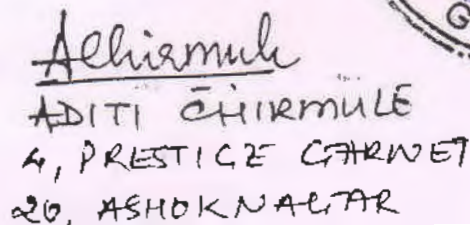 AChirmule
ADITI CHIRMULE
4, PRESTIGE GARNET
20, ASHOKNAGAR